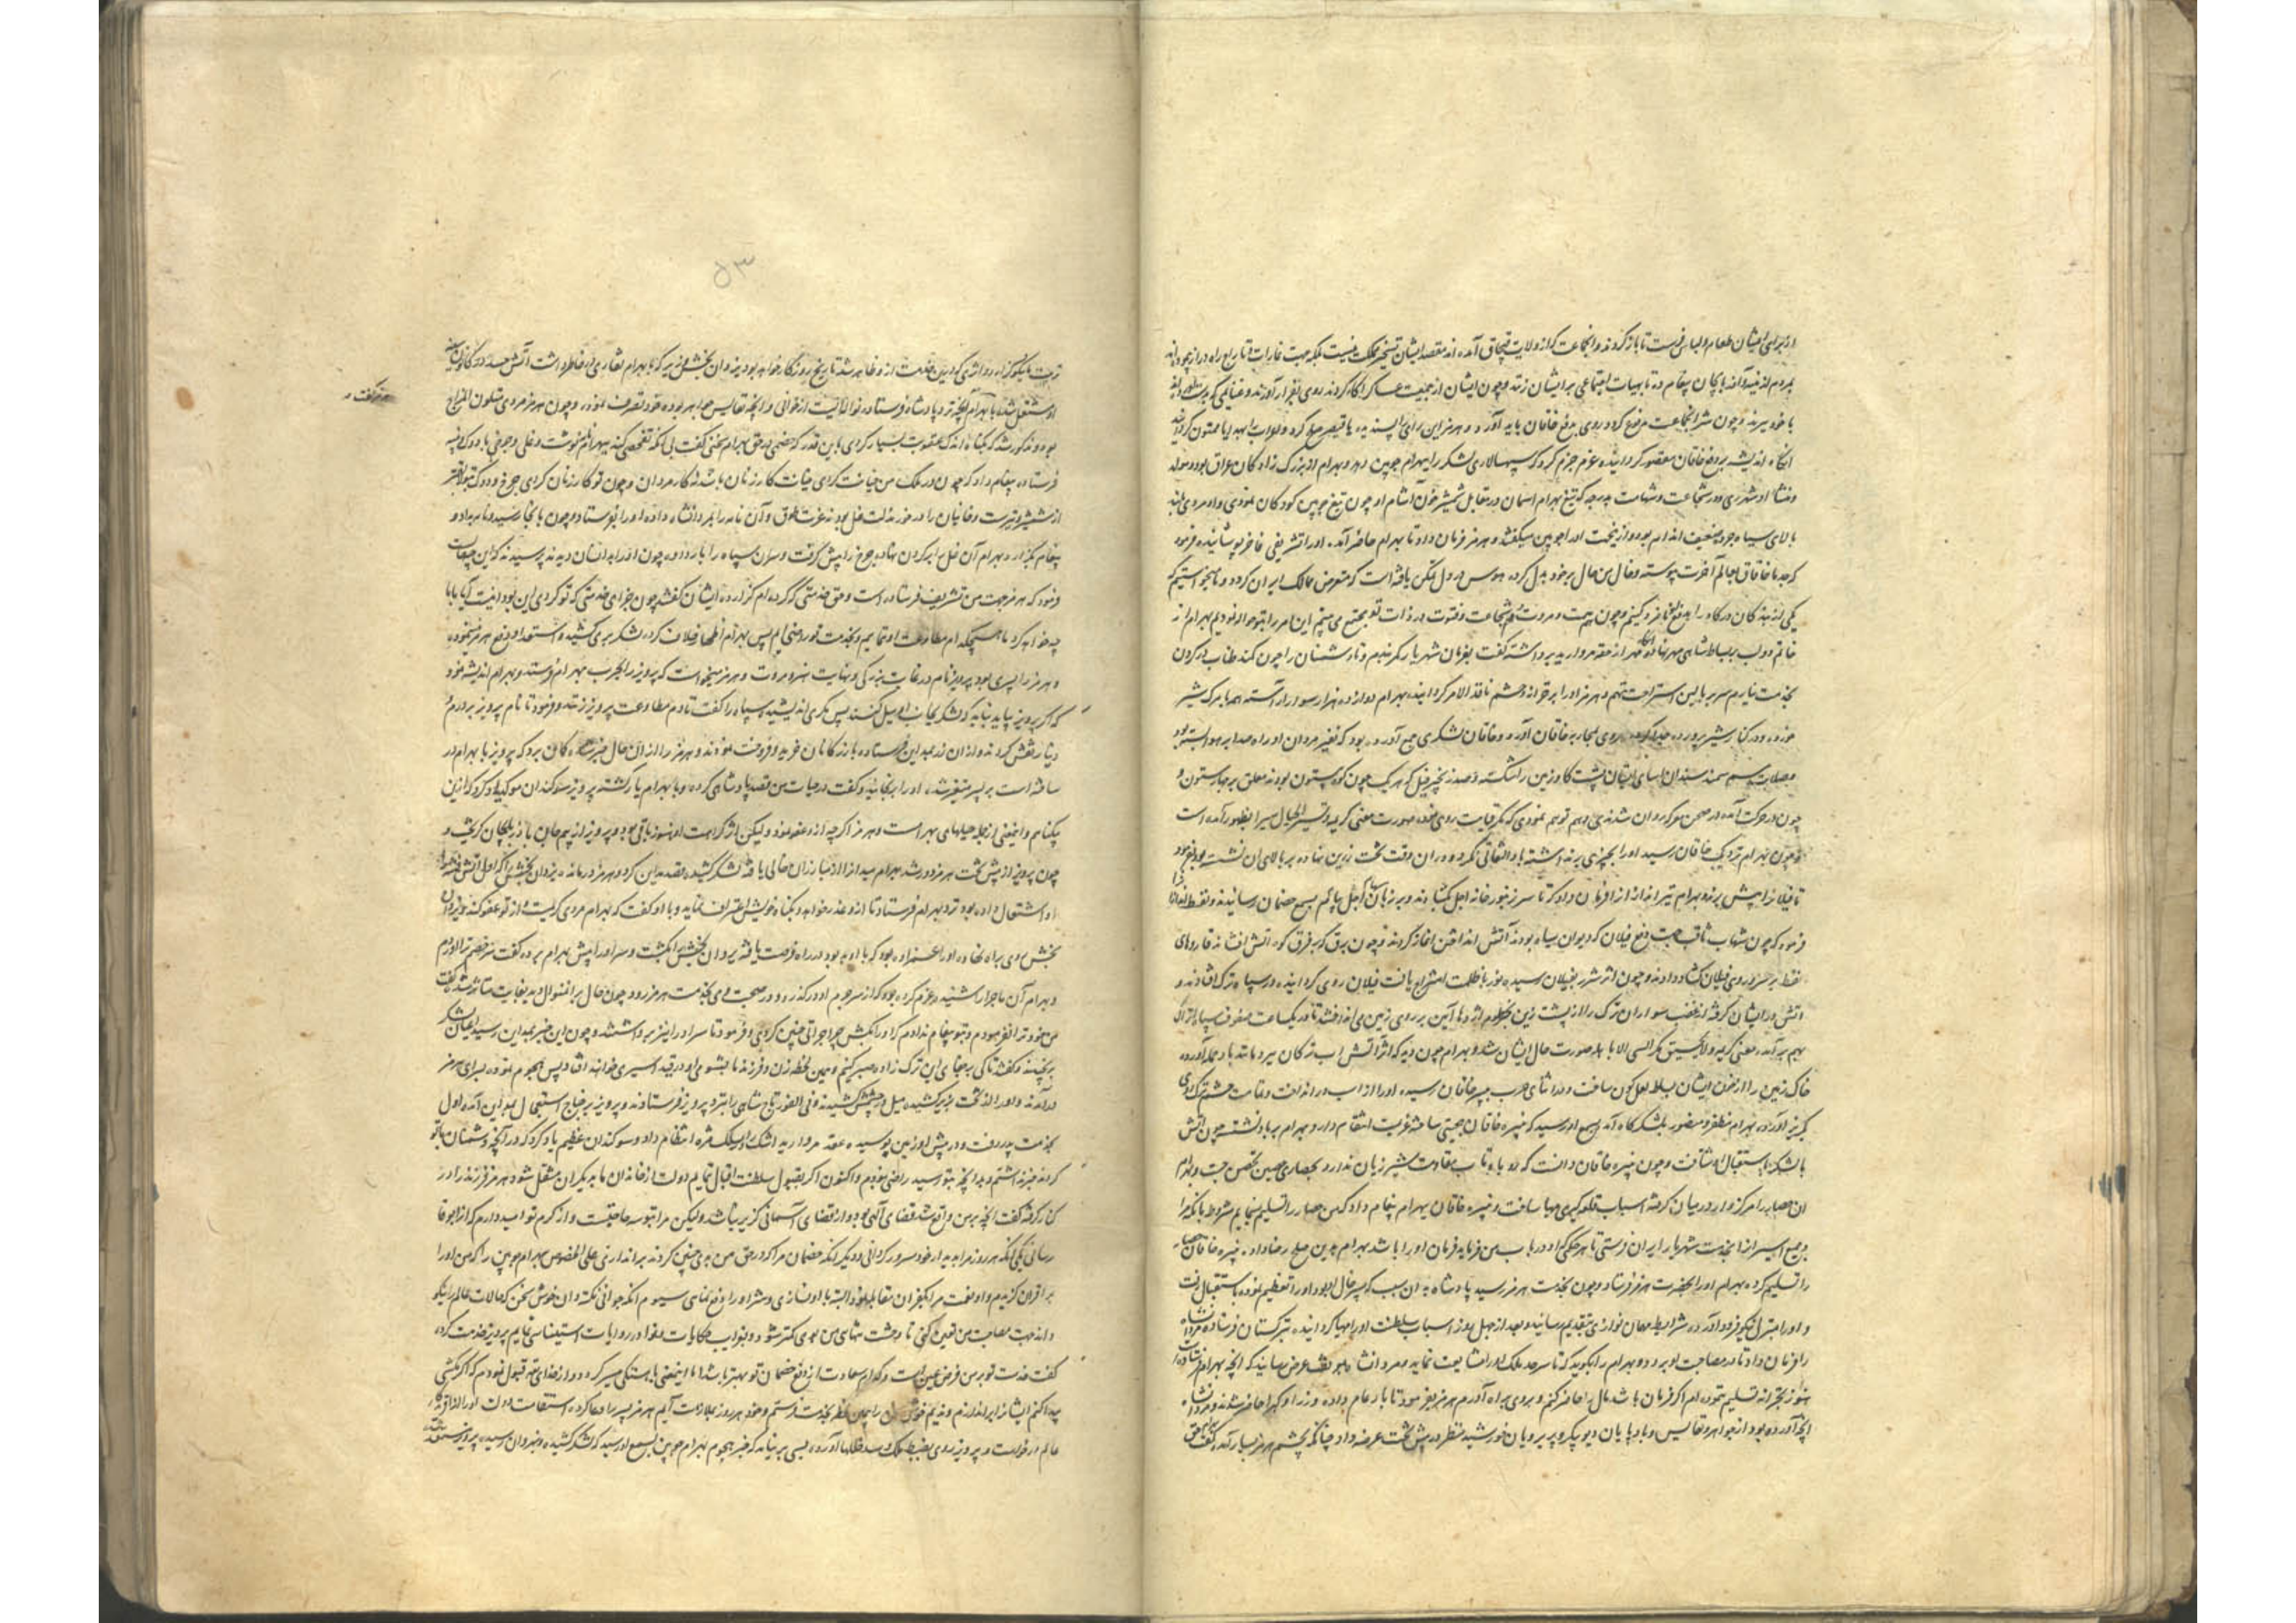 و از برای ایشان طعام و لباس فرست تا باز کردند و انجماعت که از ولایت قبچاق آمده اند مقصد ایشان تسخیر مملکت نیست بلکه جهت غارات و تاراج راه دراز پیموده اند
بمردم و آذربایجان پیغام ده تا بهیات اجتماعی بر ایشان زنند و چون ایشان از جمعیت عساکر آگاه کردند روی بفرار آورند و غنایمی که بدست آورده اند
با خود نبرند و چون شر انجماعت مرفوع کردد روی بدفع خاقان باید آورد و هرمز این رای را پسندیده با قیصر صلح کرد و اعراب را بهدایا ممنون کردانید
انگاه اندیشه بر دفع خاقان مقصور کردانیده عزم جزم کرد که سپهسالاری لشکر را ببهرام چوبین دهد و بهرام از بزرک زادکان عراق بود و مولد
و منشا او شهر ری و در شجاعت و شهامت بدرجه که تیغ بهرام اسمان در مقابل شمشیر خون آشام او چون تیغ چوبین کودکان نمودی و او مردی بلند
بالای سیاه چرده ضعیف اندام بود و از ینجهت او را چوبین میکفتند و هرمز فرمان داد تا بهرام حاضر آمد و او را تشریفی فاخر پوشانیده فرمود
که جد ما خاقان بعالم آخرت پیوسته و خال من حال بر خود بدل کرده هوس در دل تمکن یافته است که متعرض ممالک ایران کردد و ما میخواستیم که
یکی از بندکان درکاه را بدفع نامزد کنیم و چون همت و مروت و شجاعت و فتوت در ذات تو مجتمع می بینم این امر را بتو حواله نمودیم بهرام از
خاتم دولب بر بساط شاهی مهر نهاد و مهر از حقه مروارید برداشته کفت بفرمان شهریار کمر بندم و تا دشمنان را چون کمند طناب در کردن
بخدمت نیارم سر ببالین استراحت ننهم و هرمز او را بر خزانه و حشم نافذ الامر کردانید بهرام دوازده هزار سوار آراسته همه با برک شیر
خورده و در کنار شیر پرورده جدا کرده روی بمحاربه خاقان آورد و خاقان لشکری جمع آورده بود که نفیر مردان او راه صدا بر هوا بسته بود
و صلابت سم سمند اسبان ایشان پشت کاو زمین را شکسته و صد زنجیر فیل که هر یک چون کوه بیستون بودند معلق بر چهار ستون و
چون در حرکت آمده در صحن معرکه روان شدندی وهم توهم نمودی که مکر قیامت روی نموده صورت معنی کریمه و تسیر الجبال سیرا بظهور آمده است
و چون بهرام نزدیک خاقان رسید او را بچیزی برنداشته باو التفاتی نکرد و در ان وقت تخت زرین نهاده بر بالای ان نشست و بفرمود
تا فیلان را پیش برند و بهرام تیراندازان را فرمان داد که تا سر زنبورخانه اجل بکشادند و بر زبان پیام بسمع خصمان رسانیدند و نفط اندازان را
فرمود که چون شهاب ثاقب جهت دفع فیلان که دیوان سیاه بودند آتش انداختن اغاز کردند و چون برق که بر فرق کوه اتش افشاند قاروره های
نفط بر سر و روی فیلان کشاد دادند و چون اثر شرر بفیلان رسیده نور با ظلمت امتزاج یافت فیلان روی کردانیده در سپاه ترک افتادند و
اتش در ایشان کرفته از غضب سواران ترک را از پشت زین بخرطوم اژدها آیین بر روی زمین می انداختند تا در یک ساعت صفوف سپاه اتراک
بهم بر آمده معنی کریمه ولا یحیق المکر السی الا باهله صورت حال ایشان شد و بهرام چون دید که اثر اتش اب ترکان ببرد مانند باد حمله آورده
خاک زمین را از خون ایشان بساط لعلکون ساخت و در اثنای حرب تیر بخاقان رسیده او را از اسب در انداخت
بکریز آوردند بهرام مظفر و منصور بلشکرکاه آمد و بسمع او رسید که نبیره خاقان جمعیتی ساخته عزیمت انتقام دارد بهرام بر باد نشسته چون اتش
با لشکر باستقبال او شتافت و چون نبیره خاقان دانست که روباه تاب مقاومت شیر ژیان ندارد بحصاری حصین تحصن جست و بهرام
ان حصار را مرکزوار در میان کرفته اسباب قلعه کیری مهیا ساخت و نبیره خاقان ببهرام پیغام داد که من حصار را تسلیم مینمایم مشروط بانکه مرا
و جمیع اسیران را بخدمت شهریار ایران فرستی تا هر حکمی که او در باب من فرماید فرمان او را باشد بهرام بدین صلح رضا داد و نبیره خاقان حصار
را تسلیم کرده بهرام او را بحضرت هرمز فرستاد و چون بخدمت هرمز رسید پادشاه به ان سبب که پسر خال او بود او را تعظیم نموده باستقبال رفت
و او را بمنزل نیکو فرود آورده شرایط مهمان نوازی بتقدیم رسانید و بعد از چهل روز اسباب سلطنت او را مهیا کردانیده بترکستان فرستاد و مردانشاه
را فرمان داد تا در مصاحبت او برود و بهرام را بکوید که تا سرحد ملک او را مشایعت نماید و مردانشاه بموقف عرض رسانید که انچه بهرام فرستاده
هنوز بخزانه تسلیم ننموده ام اکر فرمان باشد مال را حاضر کنم و بروی براه آورم هرمز بفرمود تا بار عام داده وزرا و کبرا حاضر شدند و مردانشاه
انچه آورده بود از جواهر و نفایس و بادپایان دیو پیکر و پری رویان خورشید منظر در پیش تخت عرضه داد چنانکه بچشم هرمز بسیار آمد کفت
۵۳
تربیت نیکو کزارد و اثری که در این خدمت از و ظاهر شد تاریخ روزکار خواهد بود یزدان بخش وزیر که با بهرام نقاری در خاطر داشت آتش حسد در کانون سینه
او مشتعل شد با بهرام انچه نزد پادشاه فرستاده نواله ایست از خوانی و انچه نفایس جواهر بوده خود تصرف نموده و چون هرمز مردی متلون المزاج
بود و مذکور شد که بکناه اندک عقوبت بسیار کردی باین قدر که خصمی در حق بهرام سخنی کفت بی انکه تفحصی کند ببهرام نامه نوشت و غلی و چرخی با دوک و پنبه
فرستاده پیغام داد که چون در ملک من خیانت کردی خیانت کار زنان باشد نه کار مردان و چون تو کار زنان کردی چرخ و دوک بتو لایقتر
از شمشیر و تیرست و خاینان را در خور مذلت غل بود نه عزت طوق و آن نامه را بمردانشاه داده او را بفرستاد و چون بانجا رسید و نامه بداد و
پیغام بکزارد بهرام آن غل بر کردن نهاد و چرخ را پیش کرفت و سران سپاه را بار داد و چون او را بدانسان دیدند پرسیدند که این چیست
فرمود که هرمز جهت من تشریف فرستاده است و حق خدمتی که کرده ام کزارده ایشان کفتند چون جزای خدمتی که تو کردی این بود با ما
چه خواهد کرد ما همکی دام مطاوعت او نماییم و بخدمت تو راضی ایم پس بهرام اظهار خلاف کرده لشکر بری کشید و استعداد دفع هرمز نموده
و هرمز را پسری بود پرویز نام در غایت بزرکی و نهایت هنر و مروت و هرمز میخواست که پرویز را بحرب بهرام فرستد و بهرام اندیشه نمود
که اکر پرویز بیاید نباید که لشکر بجانب او میل کنند پس مکری اندیشید و سپاه را کفت تا دم مطاوعت پرویز زنند و فرمود تا نام پرویز بر درم و
دینار نقش کردند و از ان زر بمداین فرستاده بازرکانان خرید و فروخت نمودند و هرمز را از ان حال خبر شد کمان برد که پرویز با بهرام در
ساخته است بر پسر متغیر شد و او را برنجانید و کفت در حیات من قصد پادشاهی کرده و با بهرام یار کشته پرویز سوکندان موکد یاد کرد که ازین
بیکناهم و اینمعنی از جمله حیلهای بهرام است و هرمز اکرچه از و عفو نمود ولیکن اثر کراهت او هنوز باقی بود و پرویز از بیم جان باذربایجان کریخت و
چون پرویز از پیش تخت هرمز دور شد بهرام میدان را از مبارزان خالی یافته لشکر کشیده قصد مداین کرد و هرمز درمانده یزدان بخش را که اول اتش فتنه را
او اشتعال داده بود نزد بهرام فرستاد تا از و عذر خواهد و بکناه خویش اعتراف نماید و با او کفت که بهرام مردی کریمست و از تو عفو کند و یزدان
بخش روی براه نهاده او را عمزاده بود که با او بد بود در راه فرصت یافته یزدان بخش را بکشت و سر او را پیش بهرام برده کفت سر خصم ترا آوردم
و بهرام آن ماجرا را شنیده عزم کرده بود که از سر جرم او در کذرد و در صحبت وی بخدمت هرمز رود چون حال بر اینمنوال دید بغایت متاثر شده کفت
من خود ترا نفرموده بودم و بتو پیغام نداده ام که او را بکش چرا جراتی چنین کردی و فرمود تا سر او را نیز برداشتند و چون این خبر بمداین رسید اعیان لشکر
برنجیدند و کفتند تا کی بر جفای این ترک زاده صبر کنیم و همین لحظه زن و فرزند ما بشومی او در قید اسیری خواهند افتاد پس هجوم نموده بسرای هرمز
در آمدند و او را از تخت بزیر کشیده میل در چشمش کشیدند و فی الفور تاج شاهی را بنزد پرویز فرستادند و پرویز بر جناح استعجال بمداین آمده اول
بخدمت پدر رفت و در پیش او زمین بوسیده عقد مروارید اشک را در سلک مژه انتظام داد و سوکندان عظیم یاد کرد که در آنچه دشمنان با تو
کردند خبر نداشتم و بدانچه بتو رسید راضی نبودم و اکنون اکر بقبول سلطنت اقبال ننمایم دولت از خاندان ما بدیکران منتقل شود هرمز فرزند را در
کنار کرفته کفت انچه بر من واقع شد قضای آلهی بود و از قضای آسمانی کزیر نباشد ولیکن مرا بتو سه حاجتست و از کرم تو امید دارم که انرا بوفا
رسانی یکی انکه هر روز مرا بدیدار خود مسرور کردانی و دیکر انکه خصمان مرا که در حق من بدی چنین کردند براندازی علی الخصوص بهرام چوبین را که من او را
بر اقران کزیدم و او نعمت مرا بکفران مقابله نمود البته با او نسازی و شر او را دفع نمایی سیوم انکه جوانی نکته دان خوش سخن که حالات عالم را نیکو
داند جهت مصاحبت من تعیین کنی تا وحشت تنهایی من بوی کمتر شود و بغرایب حکایات و نوادر روایات استیناسی نمایم پرویز خدمت کرد و
کفت خدمت تو بر من فرض عین است و کدام سعادت از دفع خصمان تو بهتر باشد اما اینمعنی باهستکی میسر کردد و از خدای پذیرفتم که اکر مکنتی
پیدا کنم ایشان را براندازم و ندیم خوش سخن را همین لحظه بخدمت فرستم و خود هر روز بملازمت آیم هرمز پسر را دعا کرده استقامت دولت او را از آفریدکار
عالم درخواست و پرویز روی بضبط ملک و سد خللها آورد و بسی بر نیامد که خبر هجوم بهرام چوبین بسمع او رسید که لشکر کشیده و بنهروان رسیده پرویز